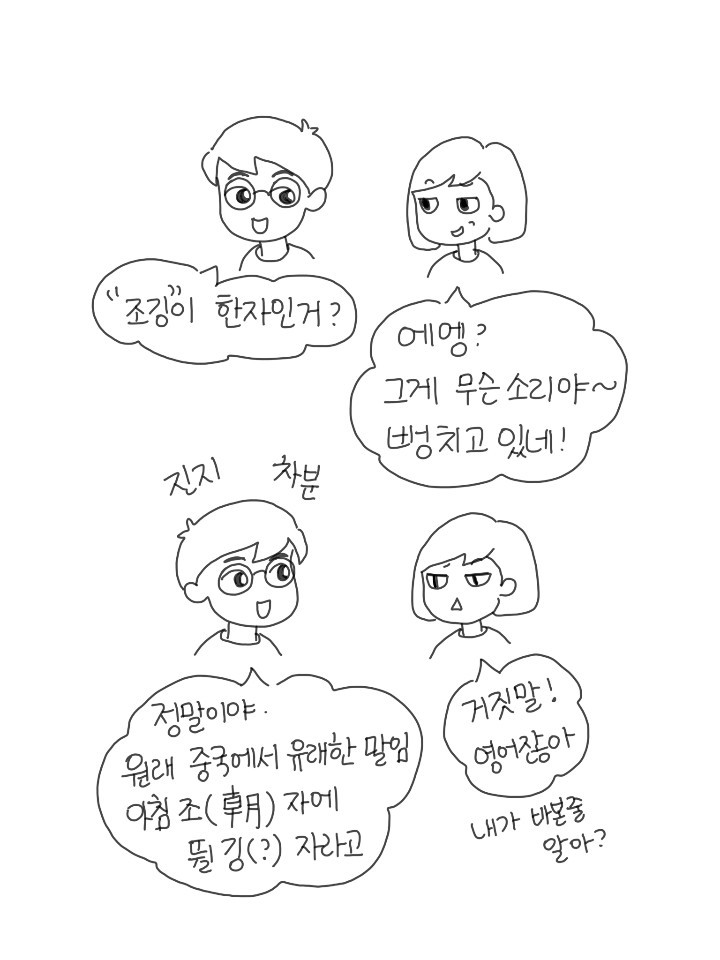 "조깅"이 한자인거?
에엥?
그게 무슨 소리야~
뻥치고 있네!
진지 차분
정말이야.
원래 중국에서 유래한 말임
아침 조(朝) 자에
뛸 깅(?) 자라고
거짓말!
영어잖아
내가 바본줄
알아?